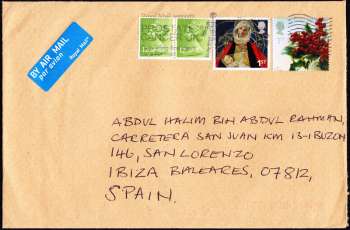 BY AIR MAIL
par avion
Royal Mail
1st
ABDUL HALIM BIN ABDUL RAHMAN,
CARRETERA SAN JUAN KM 13-IBUZON
146, SAN LORENZO
IBIZA BALEARES, 07812,
SPAIN.